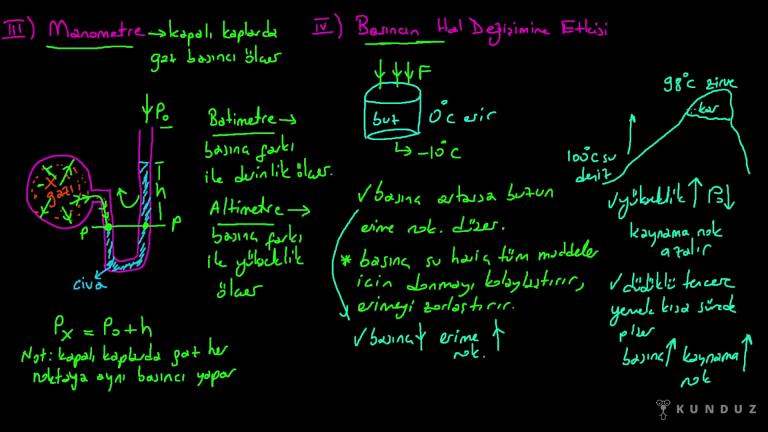 III) Manometre → kapalı kaplarda
gaz basıncı ölçer
P₀
X
gazı
h
P
P
civa
Pₓ = P₀ + h
Not: kapalı kaplarda gaz her
noktaya aynı basıncı yapar
Batimetre →
basınç farkı
ile derinlik ölçer.
Altimetre →
basınç farkı
ile yükseklik
ölçer
IV) Basıncın Hal Değişimine Etkisi
F
buz
0°C erir
→ -10°C
✓ basınç artarsa buzun
erime nok. düşer.
* basınç su hariç tüm maddeler
için donmayı kolaylaştırır,
erimeyi zorlaştırır.
✓ basınç ↓ erime ↑
nok.
98°C zirve
kar
100°C su
deniz
✓ yükseklik ↑ P₀ ↓
kaynama nok
azalır
✓ düdüklü tencere
yemek kısa sürede
pişer
basınç ↑ kaynama ↑
nok
KUNDUZ